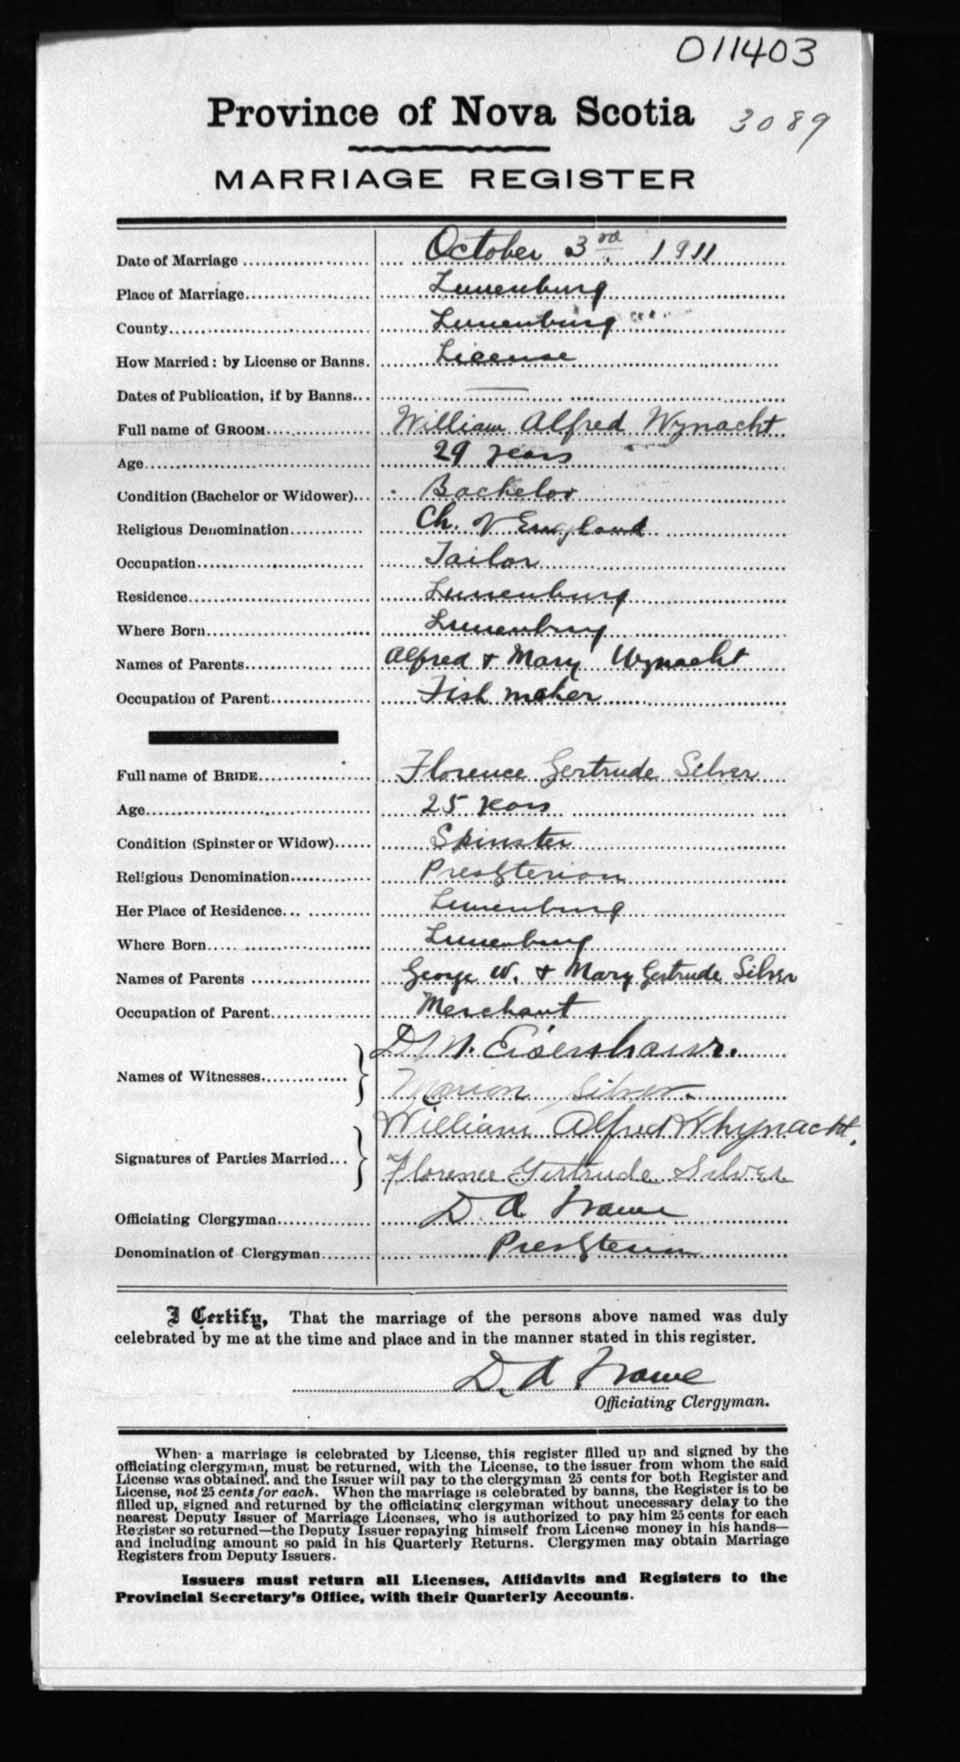 011403
Province of Nova Scotia
3089
MARRIAGE REGISTER
Date of Marriage October 3rd 1911
Place of Marriage Lunenburg
County Lunenburg
How Married: by License or Banns. License
Dates of Publication, if by Banns —
Full name of GROOM William Alfred Wynacht
Age 29 years
Condition (Bachelor or Widower) Bachelor
Religious Denomination Ch. of England
Occupation Tailor
Residence Lunenburg
Where Born Lunenburg
Names of Parents Alfred & Mary Wynacht
Occupation of Parent Fish maker
Full name of BRIDE Florence Gertrude Silver
Age 25 years
Condition (Spinster or Widow) Spinster
Religious Denomination Presbyterian
Her Place of Residence Lunenburg
Where Born Lunenburg
Names of Parents George W. & Mary Gertrude Silver
Occupation of Parent Merchant
D. N. Eisenhauer.
Names of Witnesses
Marion Silver.
William Alfred Whynacht.
Signatures of Parties Married
Florence Gertrude Silver
Officiating Clergyman D. A. Frame
Denomination of Clergyman Presbyterian
I Certify, That the marriage of the persons above named was duly
celebrated by me at the time and place and in the manner stated in this register.
D. A Frame
Officiating Clergyman.
When a marriage is celebrated by License, this register filled up and signed by the
officiating clergyman, must be returned, with the License, to the issuer from whom the said
License was obtained. and the Issuer will pay to the clergyman 25 cents for both Register and
License, not 25 cents for each. When the marriage is celebrated by banns, the Register is to be
filled up, signed and returned by the officiating clergyman without unecessary delay to the
nearest Deputy Issuer of Marriage Licenses, who is authorized to pay him 25 cents for each
Register so returned—the Deputy Issuer repaying himself from License money in his hands—
and including amount so paid in his Quarterly Returns. Clergymen may obtain Marriage
Registers from Deputy Issuers.
Issuers must return all Licenses, Affidavits and Registers to the
Provincial Secretary's Office, with their Quarterly Accounts.